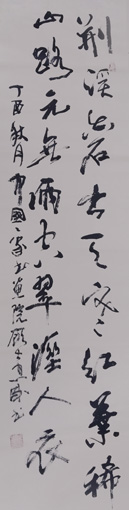 荆溪白石出天寒紅葉稀
山路元無雨空翠濕人衣
丁酉秋月中國書畫院